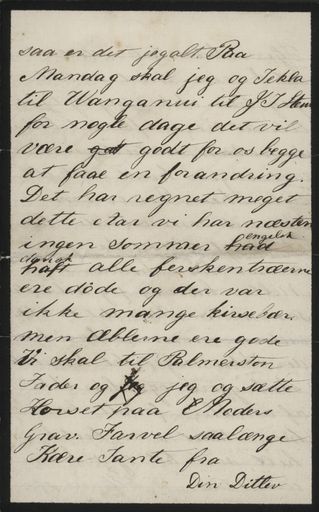 saa er det jo galt. Paa
Mandag skal jeg og Tekla
til Wanganui til J J
for nogle dage det vil
være godt for os begge
at faae en forandring.
Det har regnet meget
dette Aar vi har næsten
ingen Sommer had engelsk
dansk haft alle ferskentræerne
ere döde og der var
ikke mange kirsebær
men Æblerne ere gode
Vi skal til Palmerston
Fader og jeg og satte
Korset paa Moders
Grav. Farvel saalænge
Kære Tante fra
Din Ditlev